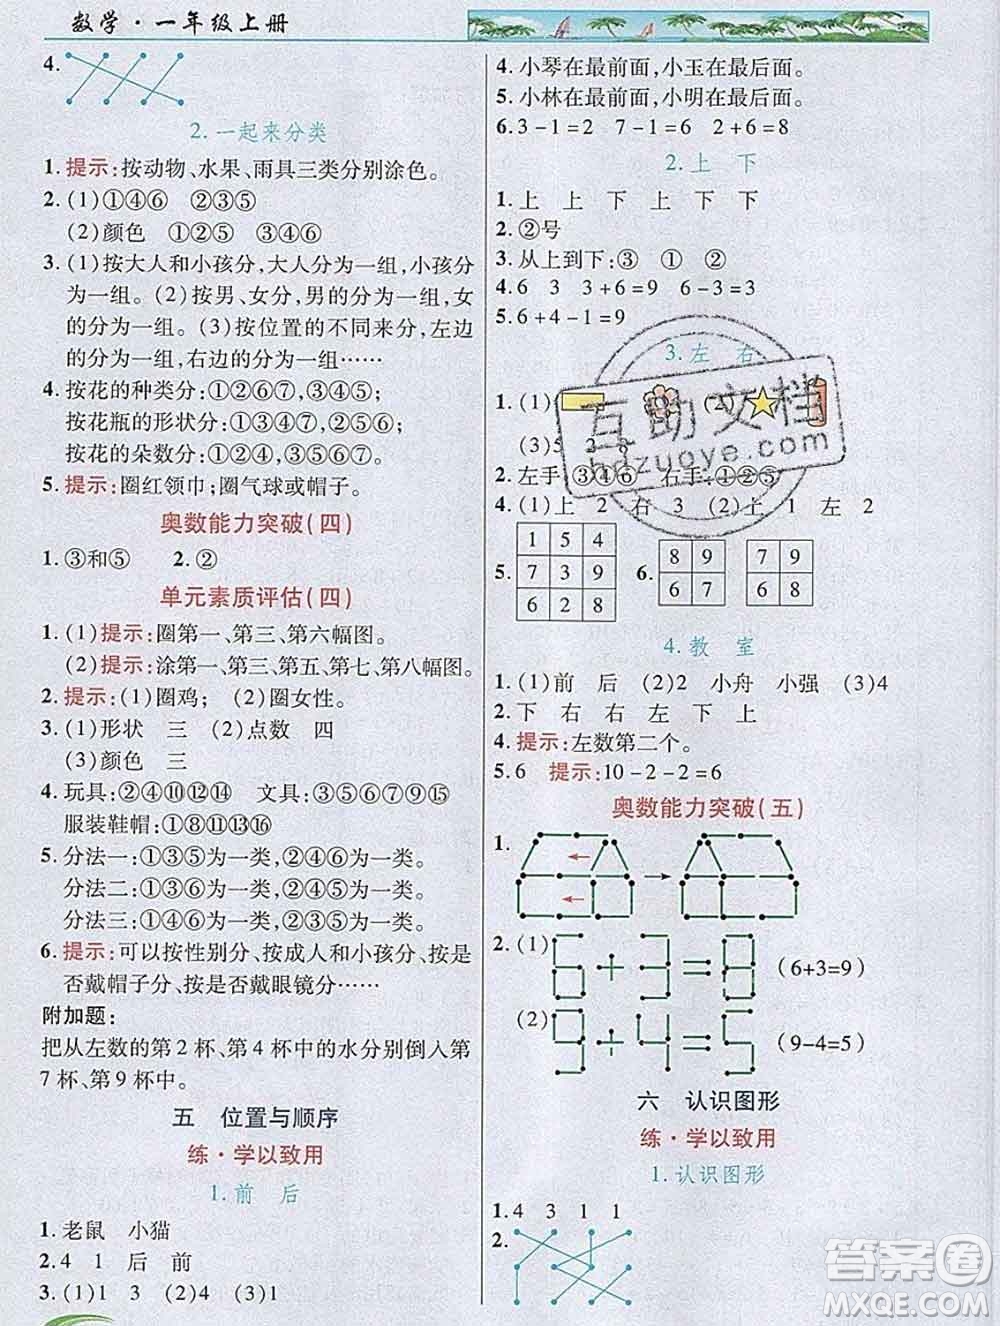 数学·一年级上册
4.
2.一起来分类
1.提示:按动物、水果、雨具三类分别涂色。
2.(1)①④⑥ ②③⑤
(2)颜色 ①②⑤ ③④⑥
3.(1)按大人和小孩分,大人分为一组,小孩分
为一组。(2)按男、女分,男的分为一组,女
的分为一组。(3)按位置的不同来分,左边
的分为一组,右边的分为一组……
4.按花的种类分:①②⑥⑦,③④⑤。
按花瓶的形状分:①③④⑥,②⑤⑦。
按花的朵数分:①②③④⑦,⑤⑥。
5.提示:圈红领巾;圈气球或帽子。
奥数能力突破(四)
1.③和⑤ 2.②
单元素质评估(四)
1.(1)提示:圈第一、第三、第六幅图。
(2)提示:涂第一、第三、第五、第七、第八幅图。
2.提示:(1)圈鸡; (2)圈女性。
3.(1)形状 三 (2)点数 四
(3)颜色 三
4.玩具:②④⑩⑫⑭ 文具:③⑤⑥⑦⑨⑮
服装鞋帽:①⑧⑪⑬⑯
5.分法一:①③⑤为一类,②④⑥为一类。
分法二:①③④为一类,②⑤⑥为一类。
分法三:①④⑥为一类,②③⑤为一类。
6.提示:可以按性别分、按成人和小孩分、按是
否戴帽子分、按是否戴眼镜分……
附加题:
把从左数的第2杯、第4杯中的水分别倒入第
7杯、第9杯中。
五 位置与顺序
练·学以致用
1.前 后
1.老鼠 小猫
2.4 1 后 前
3.(1)1 3 (2)4 (3)1
4.小琴在最前面,小玉在最后面。
5.小林在最前面,小明在最后面。
6.3-1=2 7-1=6 2+6=8
2.上 下
1.上 上 下 上 下 下
2.②号
3.从上到下:③ ① ②
4.6 3 3+6=9 6-3=3
5.6+4-1=9
3.左 右
1.(1) (2)
(3)5 2 8
2.左手:③④⑥ 右手:①②⑤
4.(1)上 2 右 3 (2)上 1 左 2
5.
1 5 4
7 3 9
6 2 8
6.
8 9
6 7
7 9
6 8
4.教 室
1.(1)前 后 (2)2 小舟 小强 (3)4
2.下 右 右 左 下 上
4.提示:左数第二个。
5.6 提示:10-2-2=6
奥数能力突破(五)
1.
2.(1) 6+3=9 (6+3=9)
(2) 9+4=5 (9-4=5)
六 认识图形
练·学以致用
1.认识图形
1.4 3 1 1
2.
互助文档
hdzuoye.com
答案圈
MXQE.COM